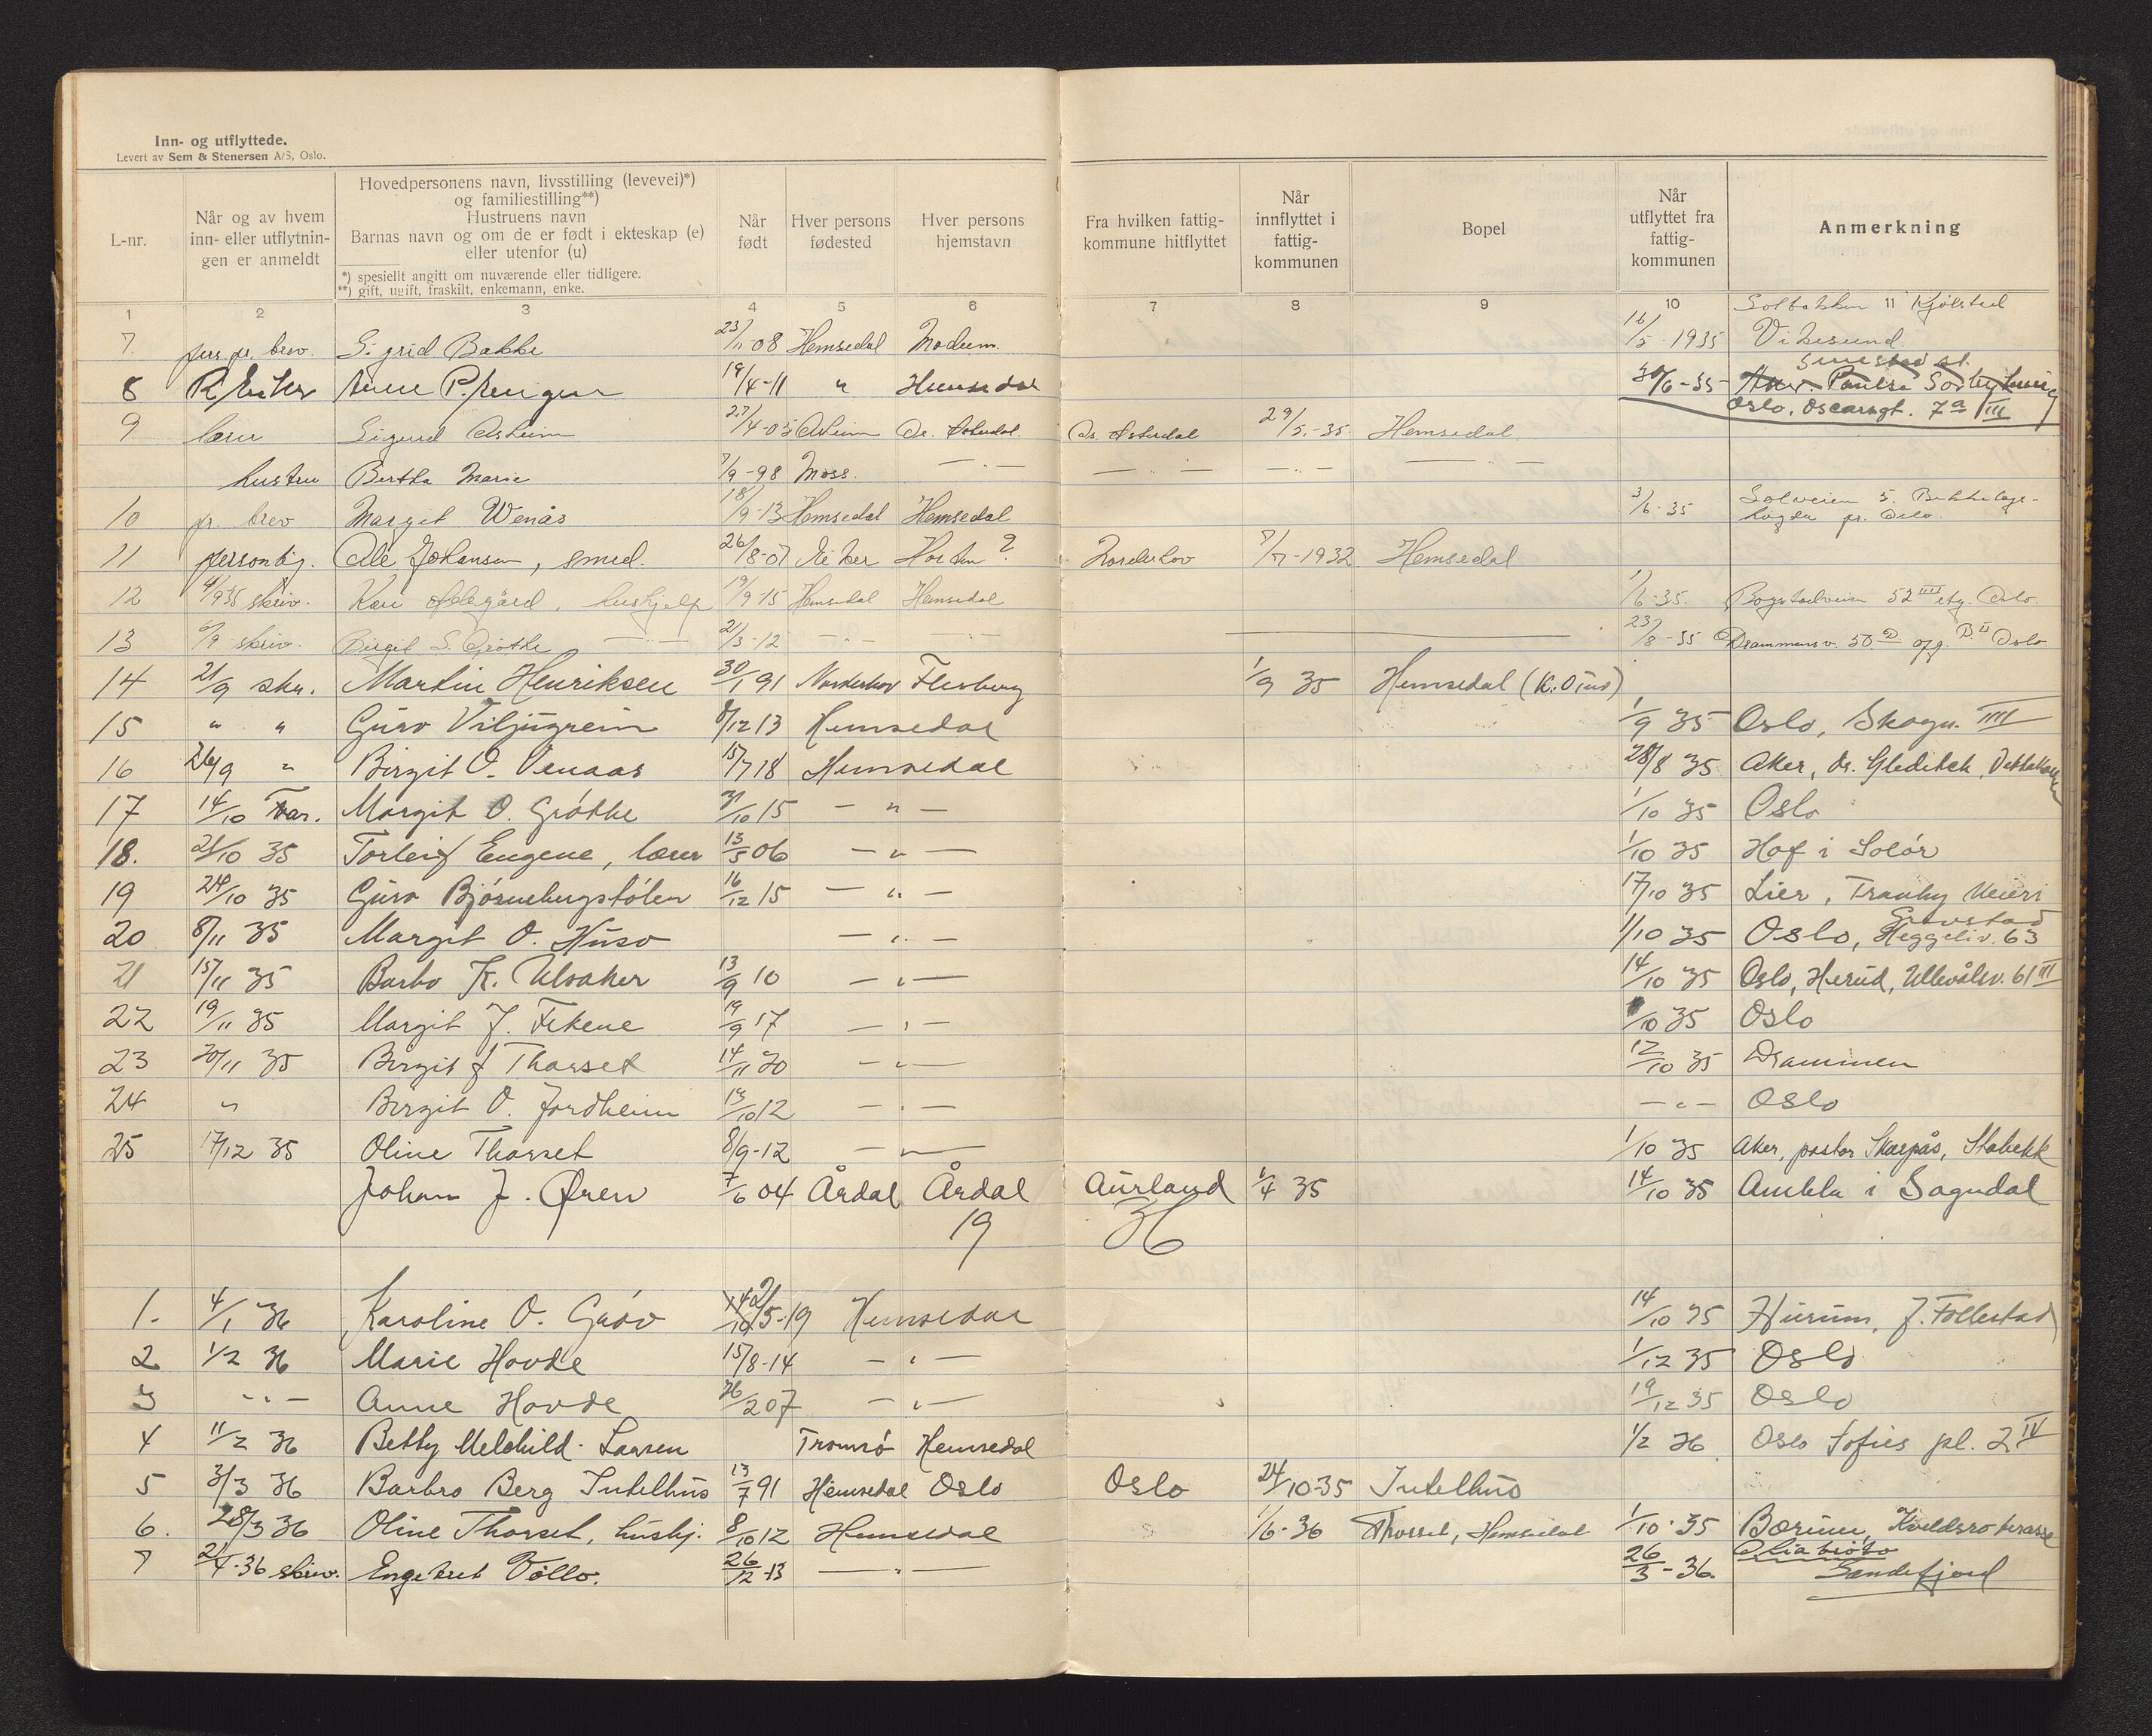 Inn- og utflyttede.
Levert av Sem & Stenersen A/S, Oslo.
L-nr.
Når og av hvem inn- eller utflytnin- gen er anmeldt
Hovedpersonens navn, livsstilling (levevei)*)
og familiestilling**)
Hustruens navn
Barnas navn og om de er født i ekteskap (e)
eller utenfor (u)
*) spesiellt angitt om nuværende eller tidligere.
**) gift, ugift, fraskilt, enkemann, enke.
Når født
Hver persons fødested
Hver persons hjemstavn
Fra hvilken fattig- kommune hitflyttet
Når innflyttet i fattig- kommunen
Bopel
Når utflyttet fra fattig- kommunen
Anmerkning
1 2 3 4 5 6 7 8 9 10
7 pr. brev. Sigrid Bakke 23/11-08 Hemsedal Modum. 16/5-1935 Vikesund
8 19/4-11 " Hemsedal 30/6-35
Oslo, Oscarsgt. 7a III
9 Sigurd Asheim 27/4-05 Asheim 29/5-35 Hemsedal
hustru Bertha Marie 7/9-98 Moss. — " —
10 pr. brev Margit Wenås 18/9-13 Hemsedal Hemsedal 3/6-35 Solveien 5. pr. Oslo.
11 personlig. Ole Johansen, smed. 26/8-07 Horten? Norderhov 7/7-1932 Hemsedal
12 4/9 35 skriv. Kari Ødegård, hushjelp 19/9-15 Hemsedal Hemsedal 1/6-35. Bogstadveien 52 IIII etg. Oslo.
13 skriv. Birgit S. Grøthe — " — 21/3-12 — " — — " — 23/8-35 Drammensv. 50 opg. B II Oslo
14 21/9 skr. Martin Henriksen 30/1 91 Norderhov Flesberg 1/9 35 Hemsedal
15 " " Guro Viljugrein 8/12 13 Hemsedal 1/9 35 Oslo, IIII
16 26/9 " Birgit O. Venaas 15/7 18 Hemsedal 28/8 35 Aker, dr. Gleditsch,
17 14/10 Margit O. Grøthe 31/10 15 — " — 1/10 35 Oslo
18. 21/10 35 Torleif Eugene, lærer 13/5 06 — " — 1/10 35 Hof i Solør
19 24/10 35 Guro Bjørnebergstølen 16/12 15 — " — 17/10 35 Lier, Tranby Meieri
20 8/11 35 Margit O. Huso — " — 1/10 35 Oslo, Heggeliv. 63
21 15/11 35 Barbo K. Ulsaker 13/9 10 — " — 14/10 35 Oslo, Herud, Ullevålsv. 61 III
22 19/11 35 Margit J. Fekene 19/9 17 — " — /10 35 Oslo
23 20/11 35 Birgit J Thorset 14/11 20 — " — 12/10 35 Drammen
24 " Birgit O. Jordheim 13/10 12 — " — — " — Oslo
25 17/12 35 Oline Thorset 8/9-12 — " — 1/10 35 Aker, pastor Skarpås, Stabekk
Johan J. Øren 7/6 04 Årdal Årdal Aurland 1/4 35 14/10 35 Ambla i Sogndal
19 36
1. 4/1 36 Karoline O. Grøv 2/5-19 Hemsedal 14/10 35 Hurum, J. Follestad
2 1/2 36 Marie Hovde 15/8-14 — " — 1/12 35 Oslo
3 — " — Anne Hovde 26/2 07 — " — 19/12 35 Oslo
4 11/2 36 Betty Melchild-Larsen Tromsø Hemsedal 1/2 36 Oslo Sofies pl. 2 IV
5 3/3 36 Barbro Berg Intelhus 13/7 91 Hemsedal Oslo Oslo 24/10-35 Intelhus
6. 28/3 36 Oline Thorset, hushj. 8/10 12 Hemsedal 1/6-36 Thorset, Hemsedal 1/10-35 Bærum, Kveldsroterasse
7 2/4-36 skriv. Engebret Vøllo. 26/12-13 — " — 26/3-36. Sandefjord